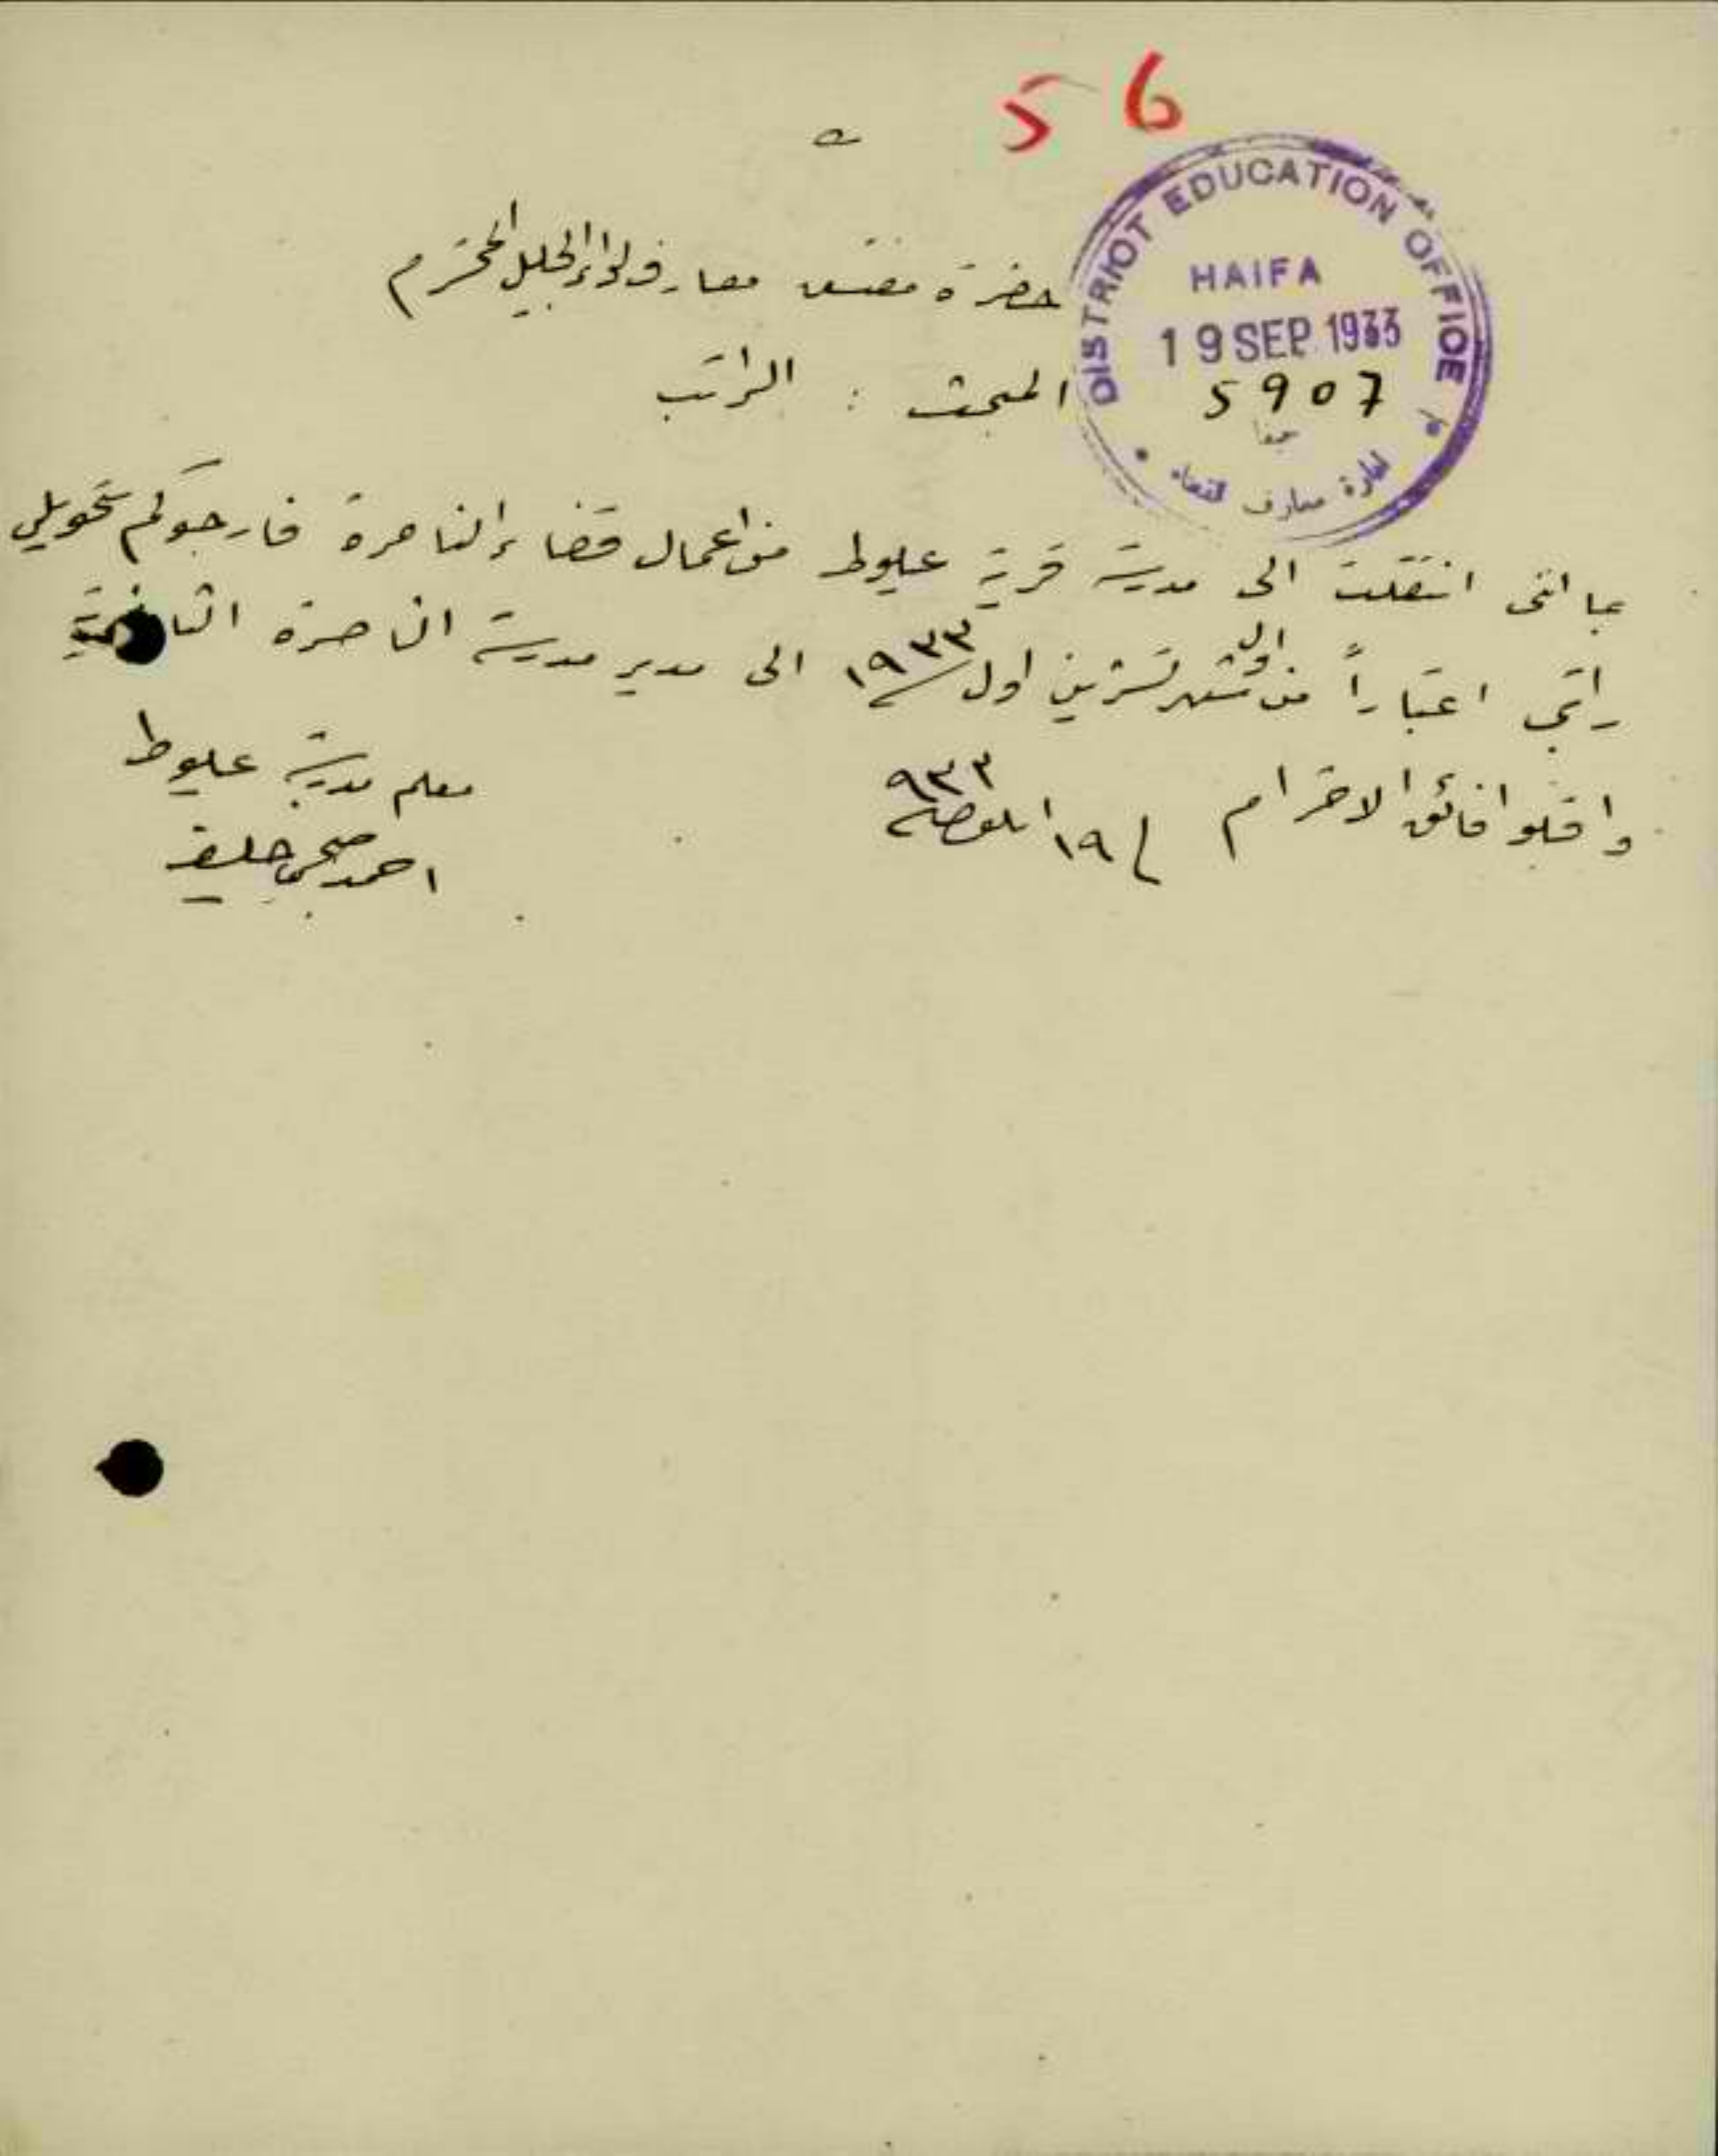 56
DISTRICT EDUCATION OFFICE
HAIFA
19 SEP 1933
5907
ادارة معارف لقضاء
حيفا
حضرة مفتش معارف لواء الجليل المحترم
المبحث : الراتب
بما انني انتقلت الى مدرسة قرية عيلوط من اعمال قضاء الناصرة فارجوكم تحويل
راتبي اعتباراً من اول شهر تشرين اول سنة ١٩٣٣ الى مدير مدرسة الناصرة الثانوية
واقبلوا فائق الاحترام ١٩ ايلول سنة ٩٣٣
معلم مدرسة عيلوط
احمد صبحي خليفة